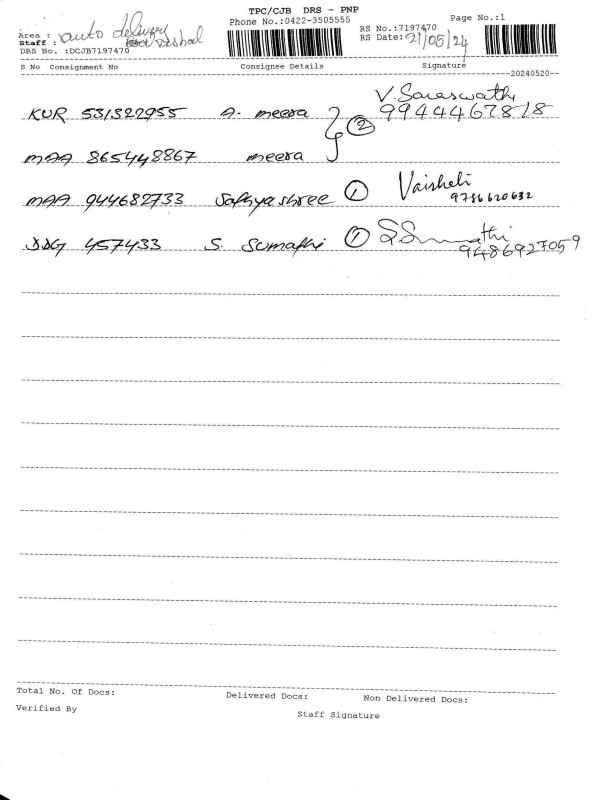 TPC/CJB DRS - PNP
Phone No.:0422-3505555
Page No.:1
Area : auto delivery
Staff : Vishal
RS No.:7197470
RS Date: 21/05/24
DRS No. :DCJB7197470
S No Consignment No Consignee Details Signature
--20240520--
V. Saraswathi
KUR 531322955 A. meera 2 9944467818
MAA 865448867 meera
MAA 944682733 Sathyashree 1 Vaisheli
9786620632
DDG 457433 S. Sumathi 1 S Sumathi
9486927059
Total No. Of Docs: Delivered Docs: Non Delivered Docs:
Verified By Staff Signature